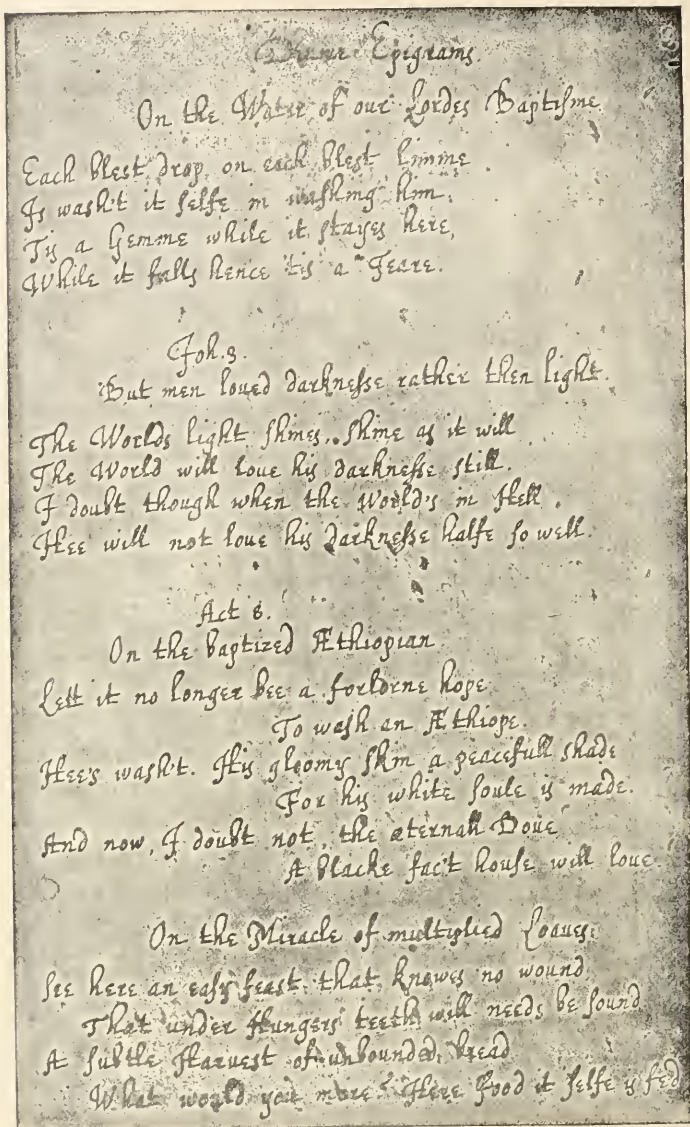 Epigrams.
On the Water of our Lordes Baptisme
Each blest drop, on each blest limme
Is washt it selfe in washing him.
Tis a Gemme while it stayes here,
While it falls hence 'tis a Teare.
Joh.3.
But men loved darknesse rather then light.
The Worlds light shines, shine as it will
The World will love his darknesse still.
I doubt though when the World's in Hell,
Hee will not love his darknesse halfe so well.
Act 8.
On the baptized Æthiopian
Lett it no longer bee a forlorne hope
To wash an Æthiope.
Hee's washt. His gloomy skin a peacefull shade
For his white soule is made.
And now, I doubt not, the æternall Dove
A blacke fac't house will love
On the Miracle of multiplied Loaves.
See here an easy feast that knowes no wound
That under Hungers teeth will needs be sound
A subtle Harvest of unbounded bread
What would you more? Here food it selfe is fed